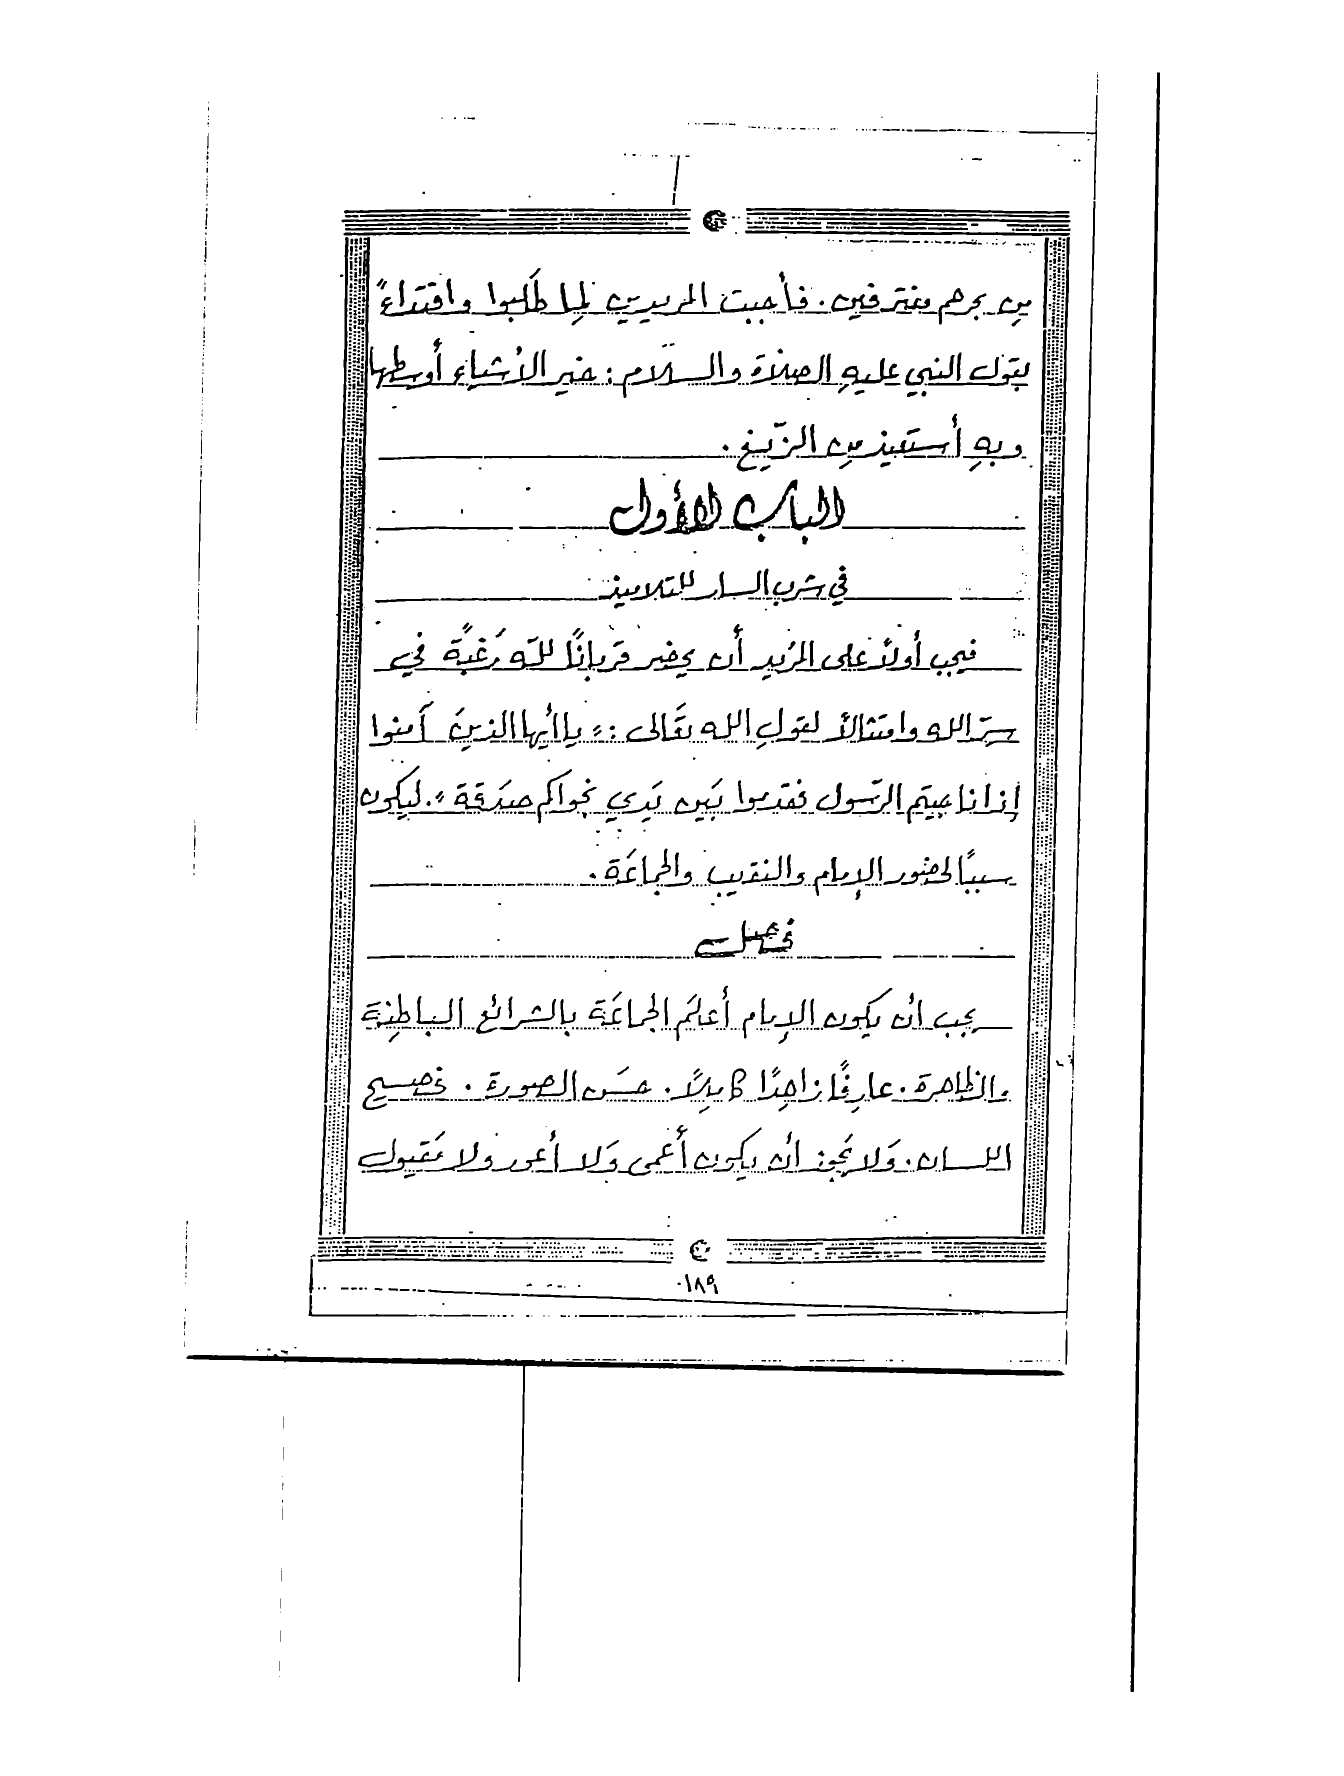 مِن بحرهم مغترفين. فأجبت المريدين لِما طَلَبوا واقتداءً
بقول النبي عليهِ الصلاة والسلام: خير الأشياء أوسطها
وبهِ أستعيذ مِن الزّيغ.
الباب الأول
في شرب السار للتلاميذ
فيجب أولاً على المرُيد أن يحضر قرباناً للّه رَغبةً في
سِرّ الله وامتثالاً لقولِ الله تعَالى: «يا أيها الذينَ آمنوا
إذا ناجيتم الرّسول فقدموا بَين يَدي نجواكم صَدَقة». ليكون
سبباً لحضور الإمام والنقيب والجماعَة.
فصل
يجب أن يكون الإمام أعلَم الجماعَة بالشرائع الباطِنة
والظاهرة. عارِفاً زاهِداً كامِلاً. حسَن الصورة. فصيح
اللسان. وَلا يَجوز أن يكون أعمى وَلا أعور ولا مَقبول
١٨٩